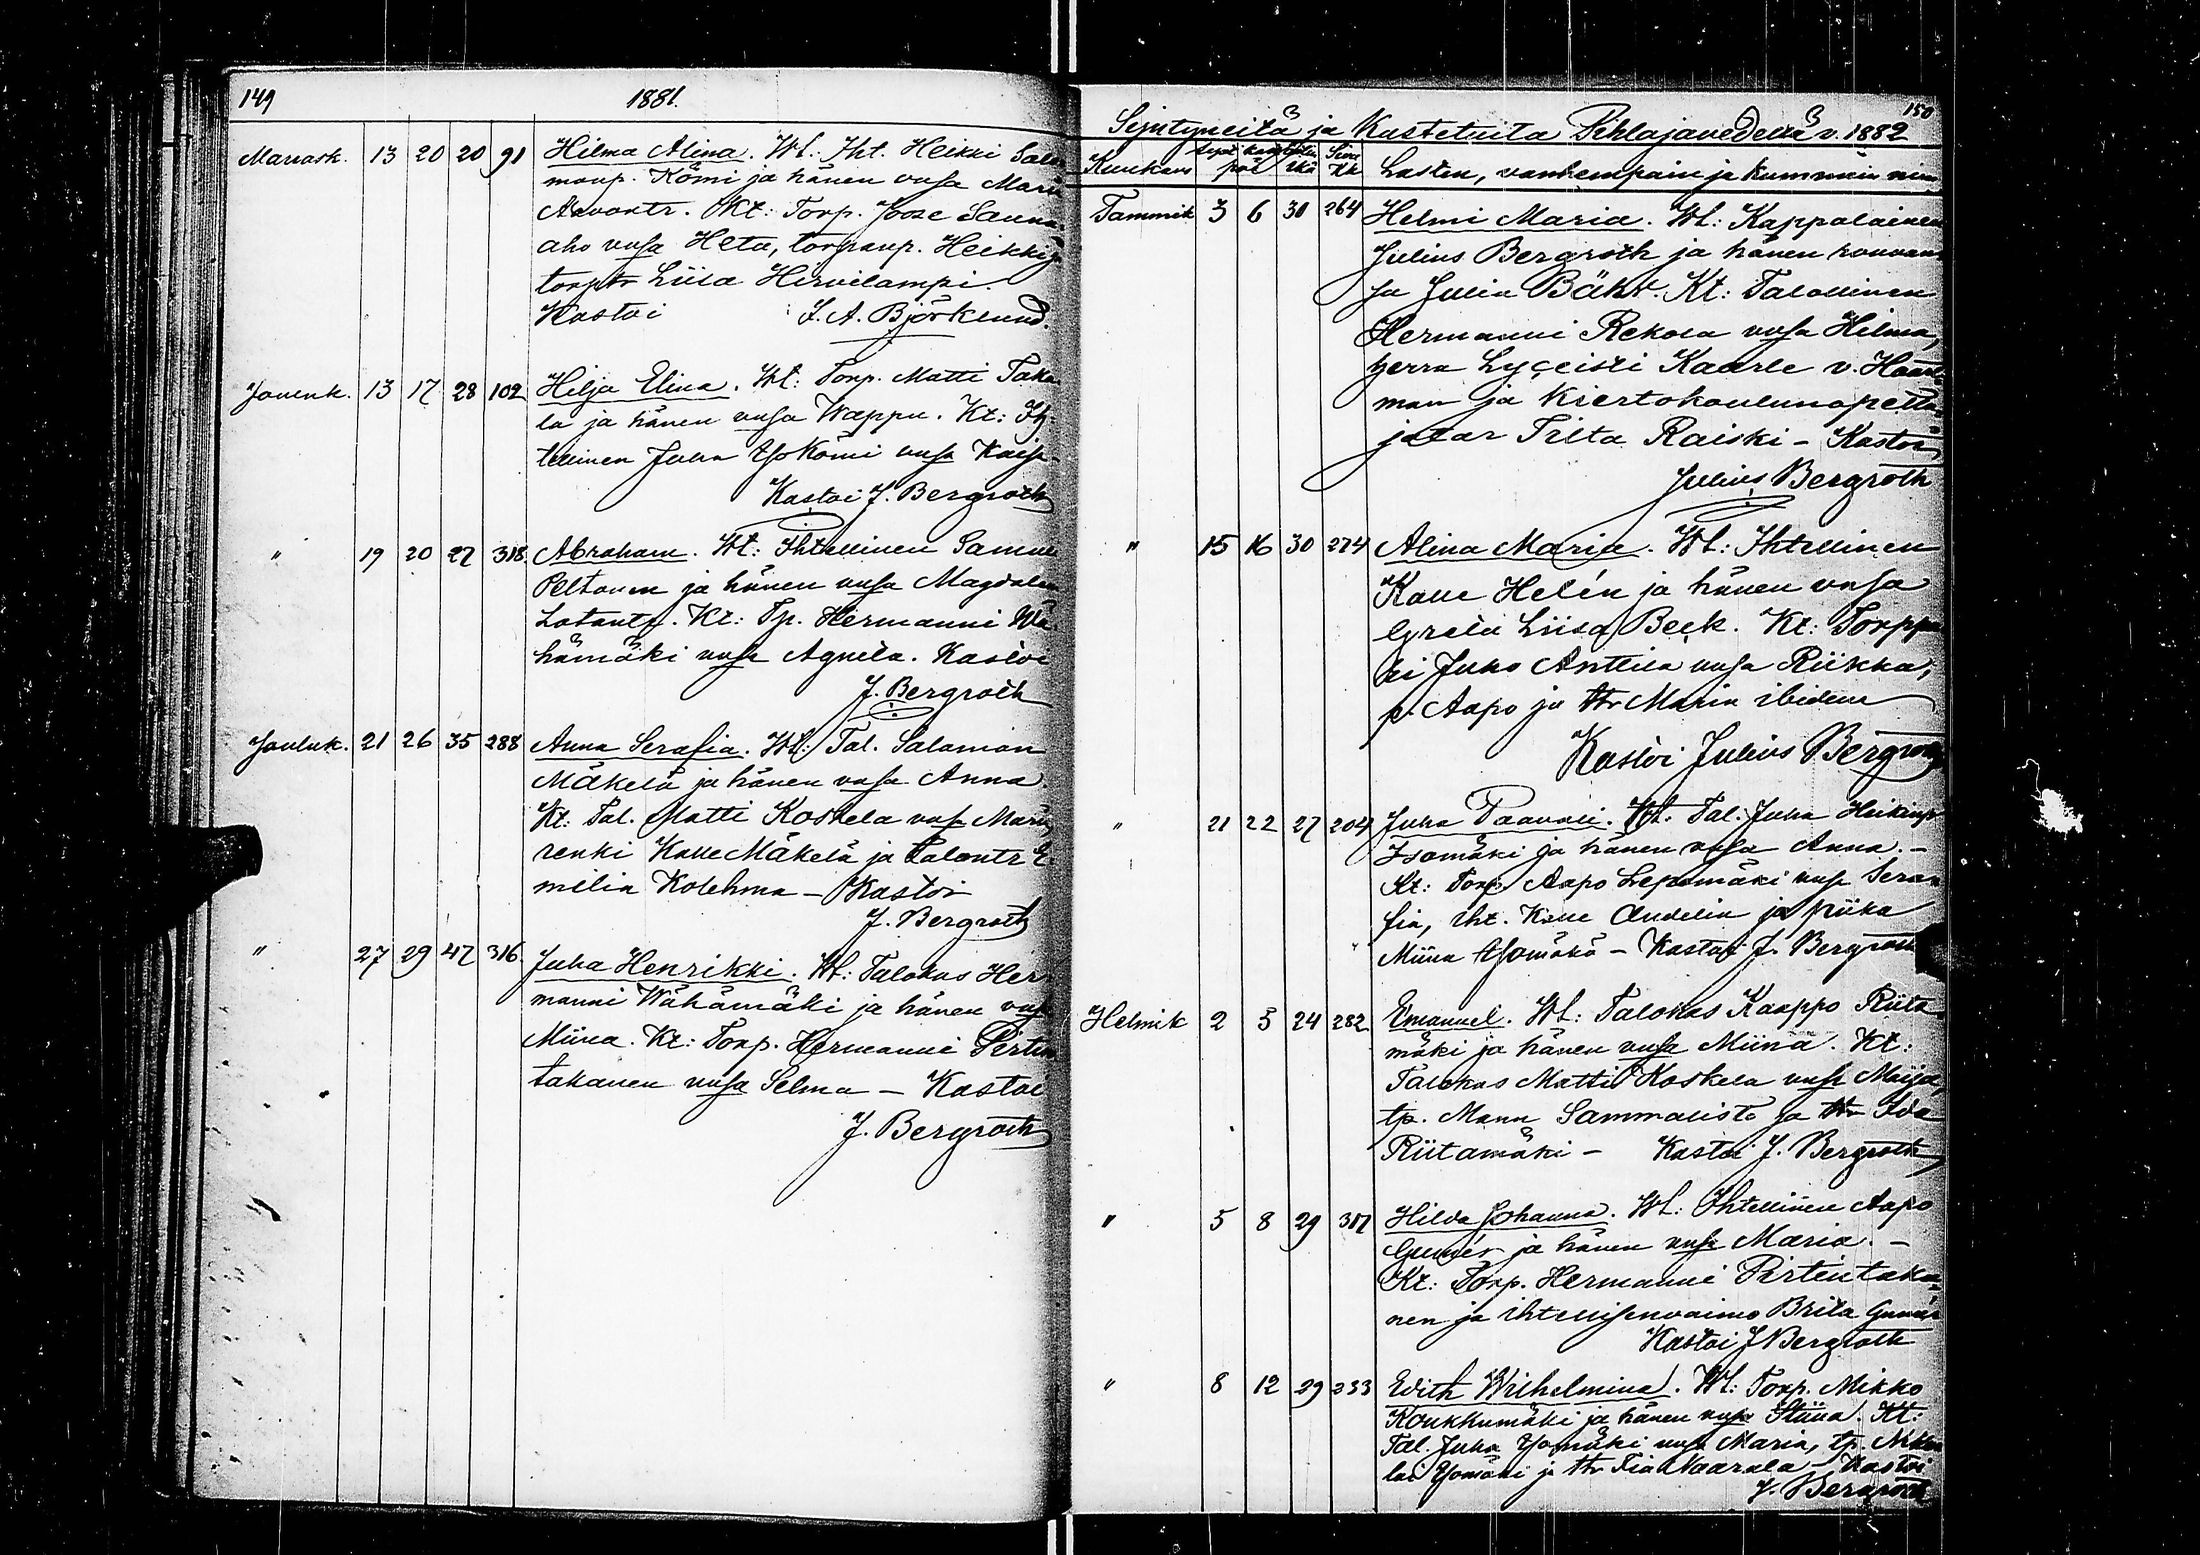 149 1881.
Marrask. 13 20 20 91 Hilma Alina. Wt: Iht. Heikki Salo-
manp. Kömi ja hänen vsa Maria
Aavantr. Kt: Torp. Jooze Sauna-
aho vsa Heta, torpanp. Heikki ja
torptr Liisa Hirvilampi.
Kastoi J. A. Björklund.
Jouluk. 13 17 28 102 Hilja Elina. Wt: Torp. Matti Taka-
la ja hänen vsa Wappu. Kt: It-
tellinen Juha Yso Kömi vsa Kaisa
Kastoi J. Bergroth
" 19 20 27 318. Abraham. Wt: Ihtellinen Samuel
Peltonen ja hänen vsa Magdalena
Kt: Tp. Hermanni Wä-
hämäki vsa Agneta. Kastoi
J. Bergroth
Jouluk. 21 26 35 288 Anna Serafia. Wt: Tal. Salamon
Mäkelä ja hänen vsa Anna.
Kt: Tal. Matti Koskela vsa Maria
renki Kalle Mäkelä ja talontr E-
milia Kolehma – Kastoi
J. Bergroth
" 27 29 47 316. Juha Henrikki. Wt: Talokas Her-
manni Wähämäki ja hänen vsa
Miina. Kt: Torp. Hermanni Pirtin-
takanen vsa Selma – Kastoi
J. Bergroth
150
Syntyneitä ja Kastetuita Pihlajavedellä v. 1882
Kuukaus Lasten, vanhempain ja kummein nim
Tammik 3 6 30 264 Helmi Maria. Wt: Kappalainen
Julius Bergroth ja hänen rouvan-
sa Julia Bäkt. Kt: Talollinen
Hermanni Rekola vsa Hilma,
herra Lyceisti Kaarle v. Haart-
man ja Kiertokoulunopetta-
jatar Tilta Raiski – Kastoi
Julius Bergroth
" 15 16 30 274 Alina Maria. Wt: Ihtellinen
Kalle Helén ja hänen vsa
Greta Liisa Beck. Kt: Torppa-
ri Juho Anttila vsa Riikka,
p. Aapo ja ttr Maria ibidem
Kastoi Julius Bergroth
" 21 22 27 204 Juha Paavali. Wt. Tal. Juha Heikinp
Isomäki ja hänen vsa Anna. –
Kt: Torp. Aapo Lepomäki vsa Sera-
fia, iht. Kalle Andelin ja piika
Miina Ysomäki – Kastoi J. Bergroth
Helmik 2 5 24 282 Emanuel. Wt: Talokas Kaappo Riita
mäki ja hänen vsa Miina. Kt:
Talokas Matti Koskela vsa Maija,
tp. Manu Sammalisto ja ttr Ida
Riitamäki – Kastoi J. Bergroth
" 5 8 29 317 Hilda Johanna. Wt: Ihtellinen Aapo
Gunér ja hänen vsa Maria. –
Kt: Torp. Hermanni Pirtintaka-
nen ja ihtellisenvaimo Brita Gunér
Kastoi J Bergroth
" 8 12 29 233 Edith Wilhelmina. Wt: Torp. Mikko
Koukkumäki ja hänen vsa Stiina. Kt:
Tal. Juha Ysomäki vsa Maria, tp. Niko-
lai Ysomäki ja ttr Fia Naarala – Kastoi
J. Bergroth